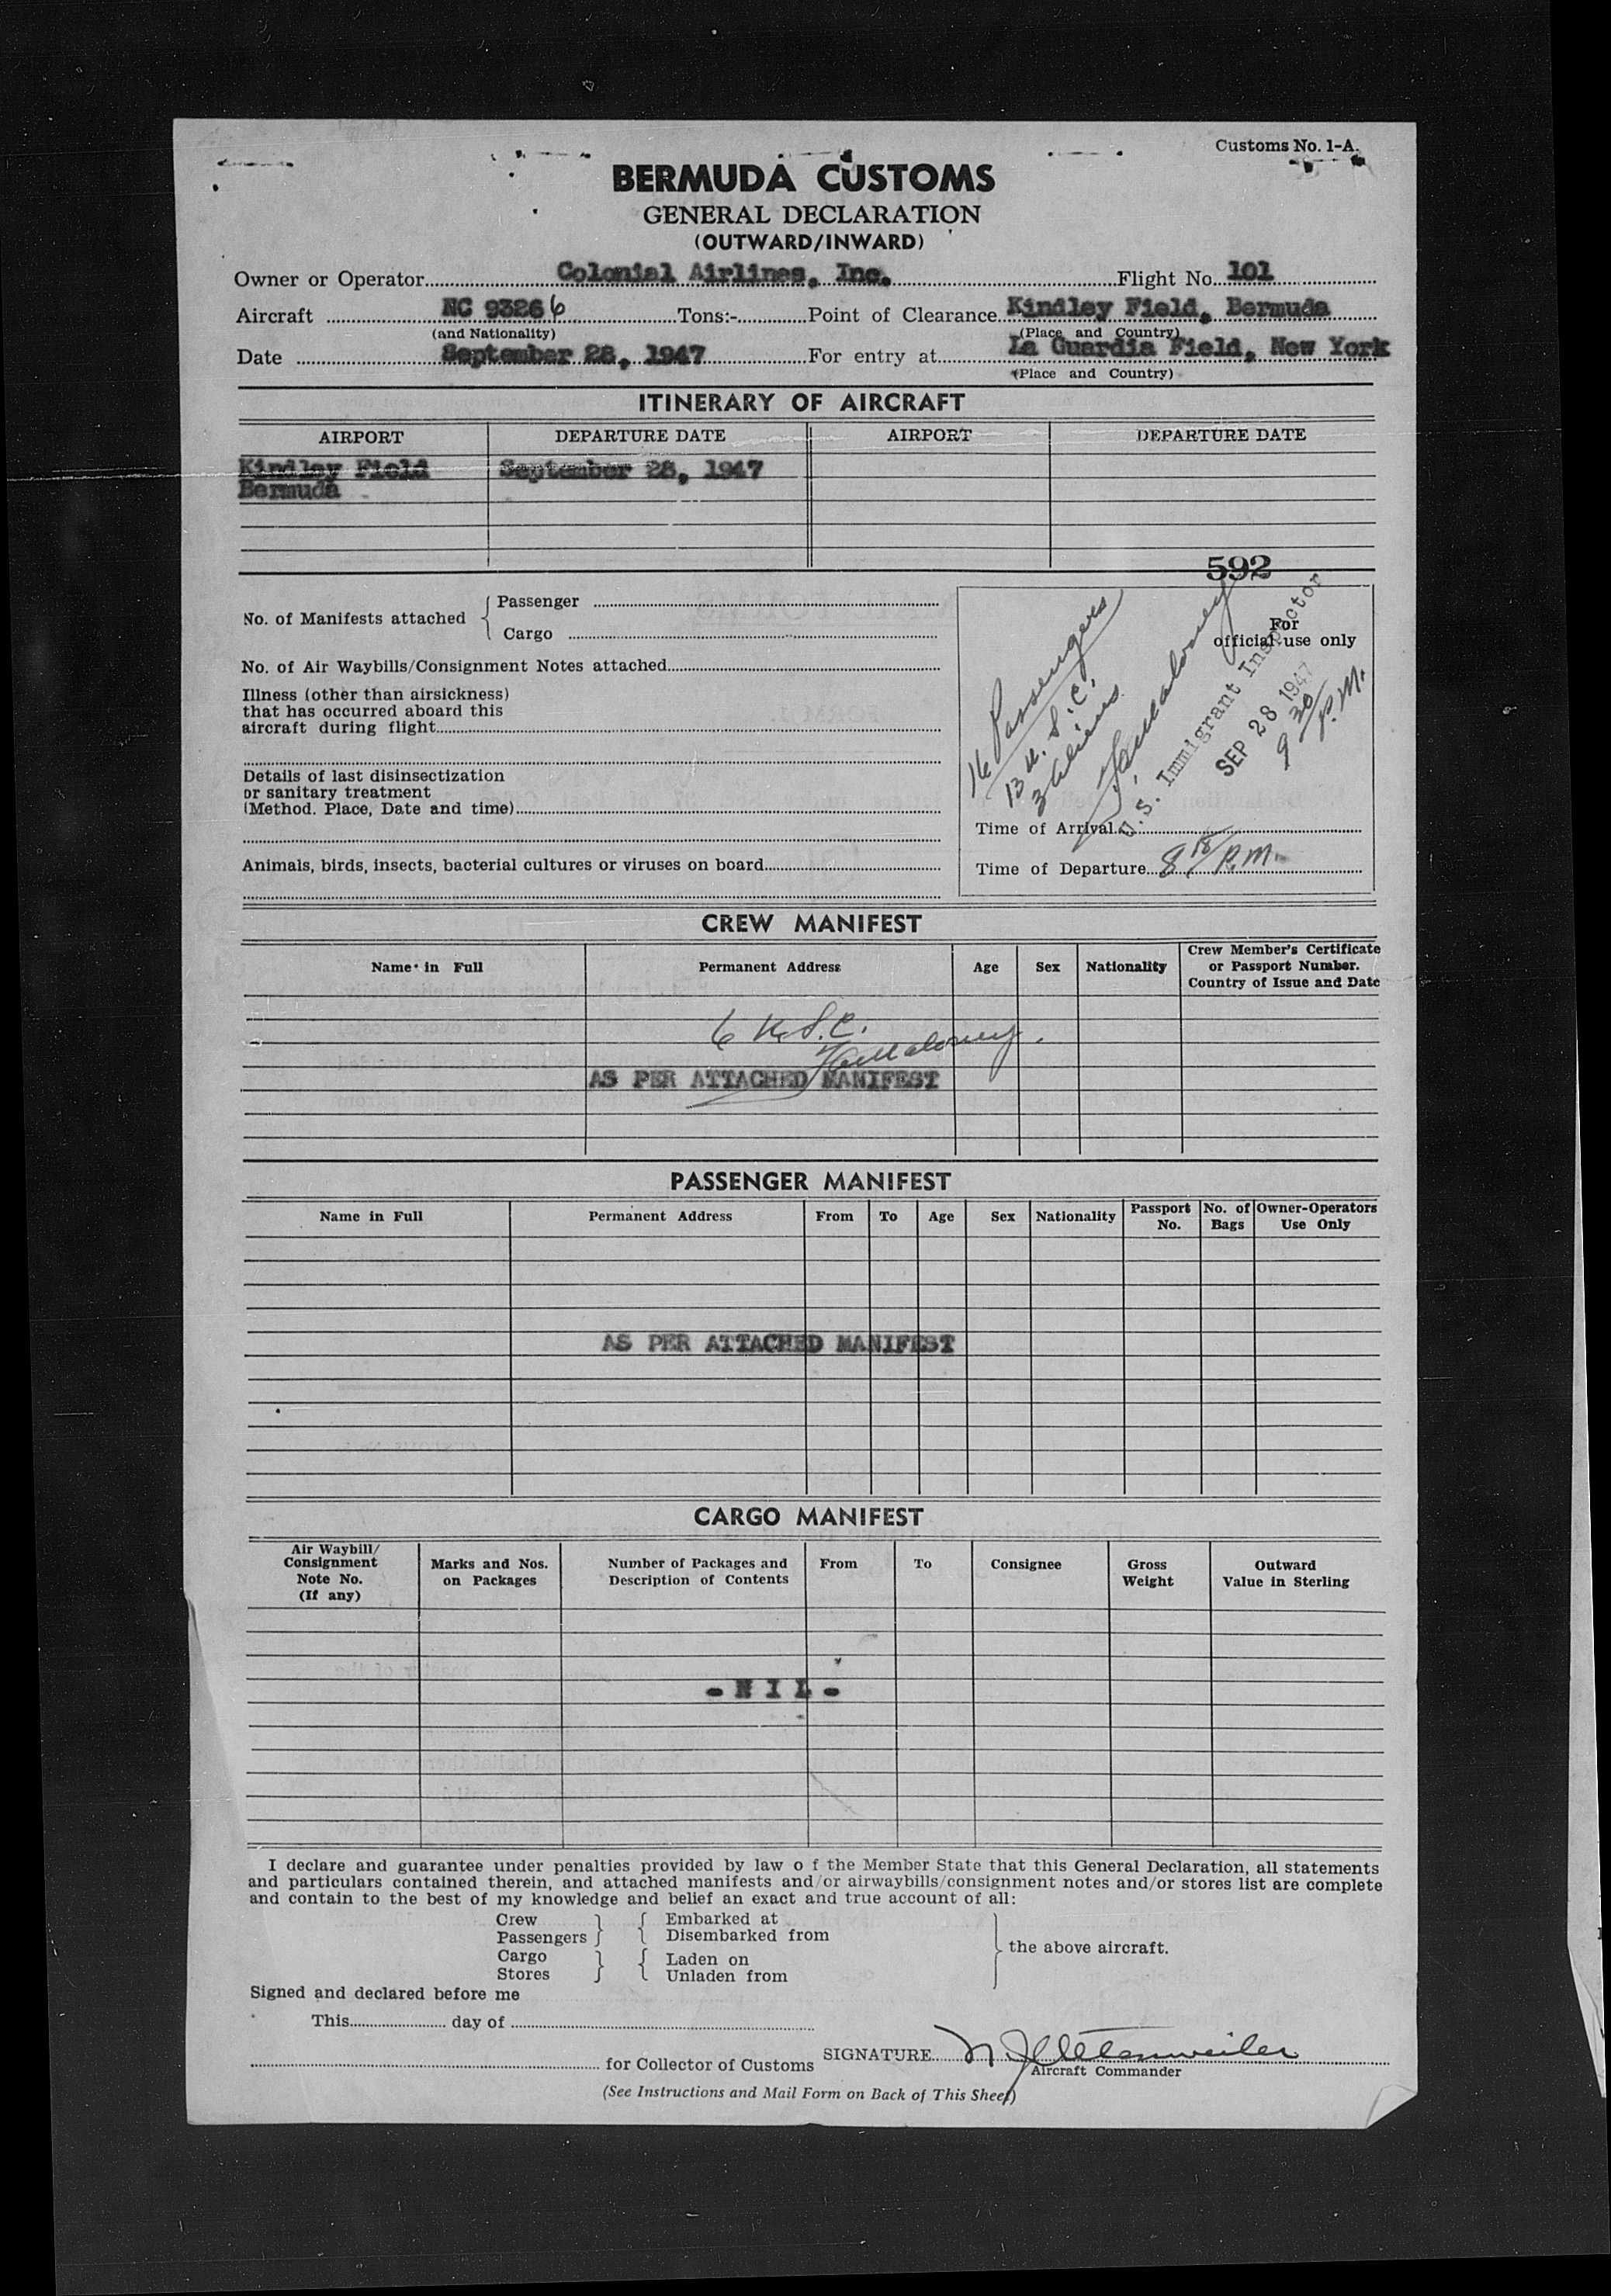 Customs No. 1-A.
BERMUDA CUSTOMS
GENERAL DECLARATION
(OUTWARD/INWARD)
Owner or Operator Colonial Airlines, Inc. Flight No. 101
Aircraft NC 93266 Tons:- Point of Clearance Kindley Field, Bermuda
(and Nationality) (Place and Country)
Date September 28, 1947 For entry at La Guardia Field, New York
(Place and Country)
ITINERARY OF AIRCRAFT
AIRPORT DEPARTURE DATE AIRPORT DEPARTURE DATE
Kindley Field September 28, 1947
Bermuda
592
No. of Manifests attached { Passenger
Cargo
No. of Air Waybills/Consignment Notes attached
Illness (other than airsickness)
that has occurred aboard this
aircraft during flight
Details of last disinsectization
or sanitary treatment
(Method. Place, Date and time)
Animals, birds, insects, bacterial cultures or viruses on board
For
official use only
16 Passengers
13 U.S.C.
3 Aliens
U.S. Immigrant Inspector
SEP 28 1947
9 30/P.M.
Time of Arrival
Time of Departure 8 15/P.M.
CREW MANIFEST
Name in Full Permanent Address Age Sex Nationality Crew Member's Certificate
or Passport Number.
Country of Issue and Date
6 U.S.C.
AS PER ATTACHED MANIFEST
PASSENGER MANIFEST
Name in Full Permanent Address From To Age Sex Nationality Passport No. No. of Bags Owner-Operators Use Only
AS PER ATTACHED MANIFEST
CARGO MANIFEST
Air Waybill/ Consignment Note No. (If any) Marks and Nos. on Packages Number of Packages and Description of Contents From To Consignee Gross Weight Outward Value in Sterling
- N I L -
I declare and guarantee under penalties provided by law o f the Member State that this General Declaration, all statements
and particulars contained therein, and attached manifests and/or airwaybills/consignment notes and/or stores list are complete
and contain to the best of my knowledge and belief an exact and true account of all:
Crew } { Embarked at
Passengers } { Disembarked from
} the above aircraft.
Cargo } { Laden on
Stores } { Unladen from
Signed and declared before me
This day of
for Collector of Customs SIGNATURE
Aircraft Commander
(See Instructions and Mail Form on Back of This Sheet)